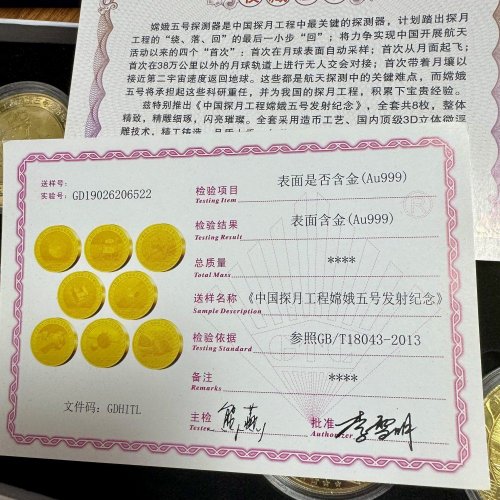 嫦娥五号探测器是中国探月工程中最关键的探测器，计划踏出探月
工程的“绕、落、回”的最后一小步“回”；将力争实现中国开展航天
活动以来的四个“首次”：首次在月球表面自动采样；首次从月面起飞；
首次在38万公里以外的月球轨道上进行无人交会对接；首次带着月壤以
接近第二宇宙速度返回地球。这些都是航天探测中的关键难点，而嫦娥
五号将承担起这些科研重任，并为我国的探月工程，积累下宝贵经验。
兹特别推出《中国探月工程嫦娥五号发射纪念》，全套共8枚，整体
精致，精雕细琢，闪亮璀璨。全套采用造币工艺、国内顶级3D立体微浮
雕技术，精工铸造
送样号：
实验号： GD19026206522
检验项目 表面是否含金(Au999)
Testing Item
检验结果 表面含金(Au999)
Testing Result
总质量 ****
Total Mass
送样名称 《中国探月工程嫦娥五号发射纪念》
Sample Description
检验依据 参照GB/T18043-2013
Testing Standard
备注 ****
Remarks
文件码：GDHITL
主检
Tester
批准 李雪明
Authorizer